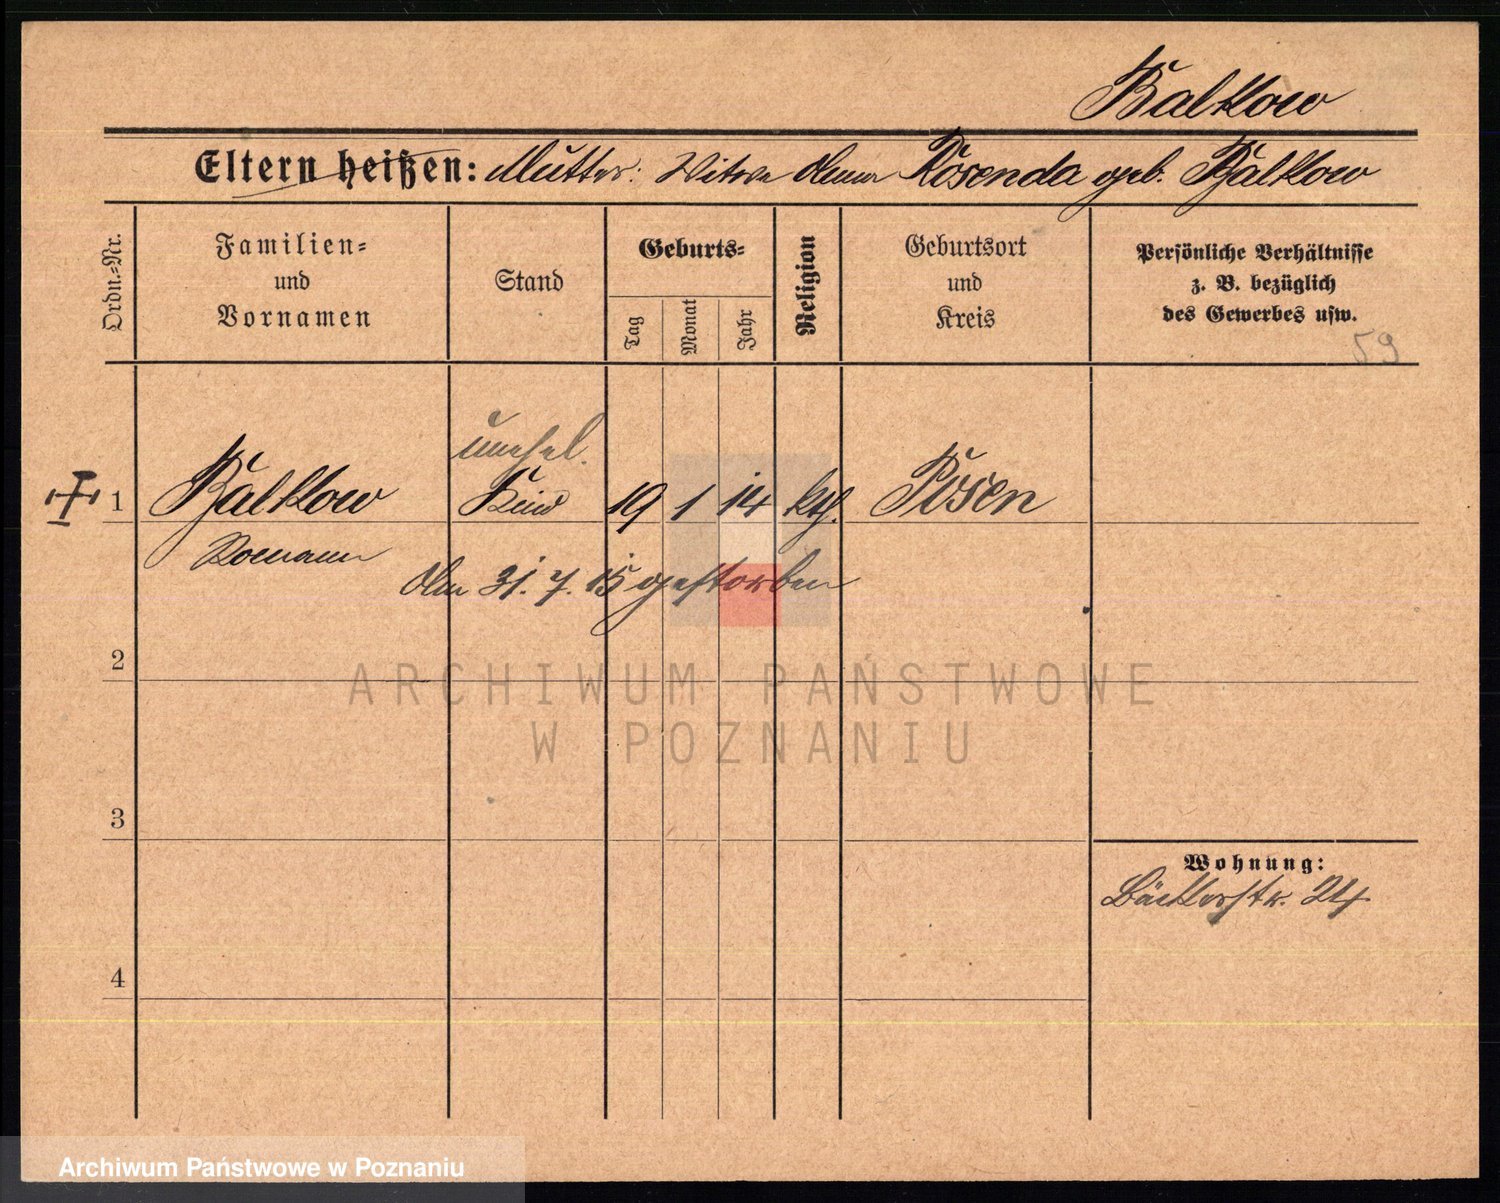 Balkow
Eltern heißen: Mutter: Witwe Anna Rosenda geb. Balkow
Ordn.=Nr.
Familien=
und
Vornamen
Stand
Geburts=
Tag
Monat
Jahr
Religion
Geburtsort
und
Kreis
Persönliche Verhältnisse
z. B. bezüglich
des Gewerbes usw.
59
unehel.
1 Balkow Kind 19 1 14 kth. Posen
Romann
Am 31. 7. 15 gestorben
2
ARCHIWUM PAŃSTWOWE
W POZNANIU
3
Wohnung:
Bäckerstr. 24
4
Archiwum Państwowe w Poznaniu